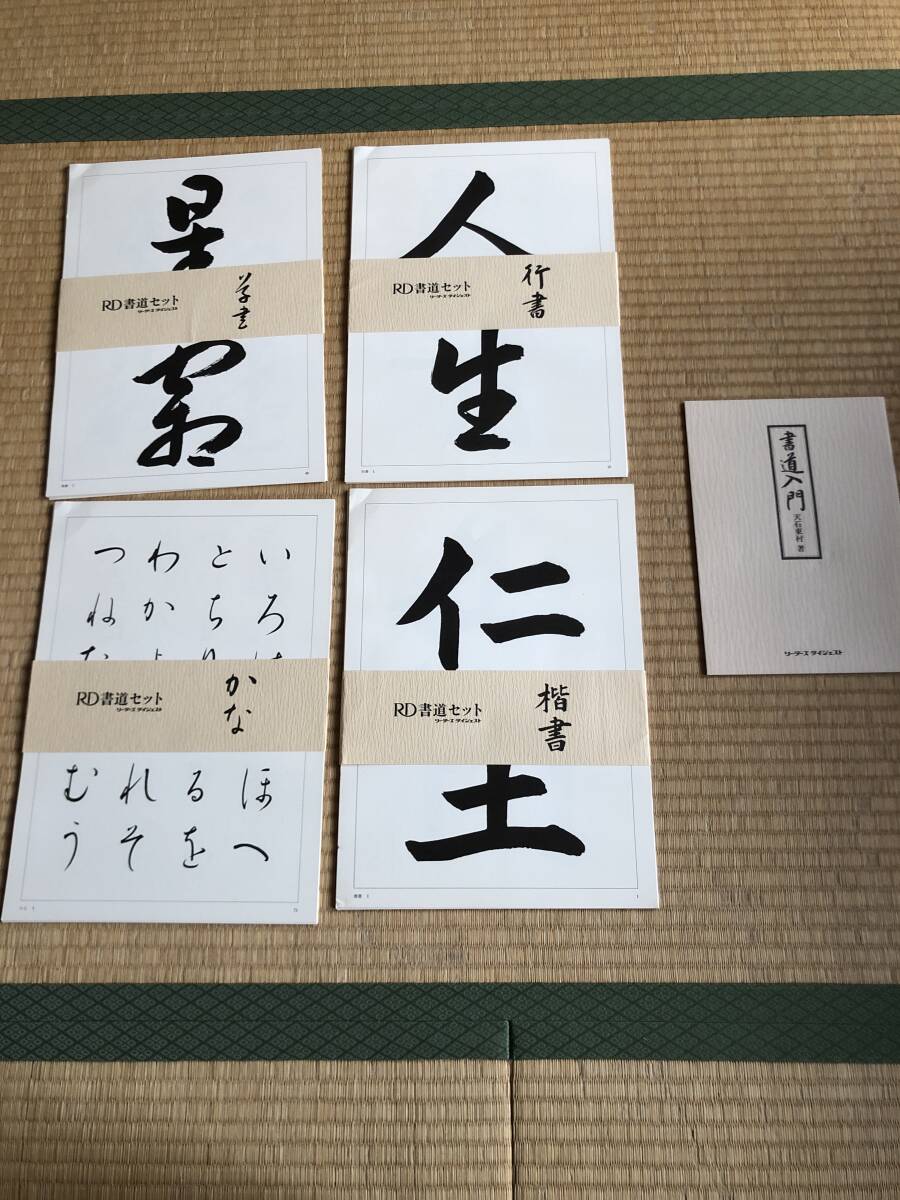 RD書道セット
リーダーズ ダイジェスト
草書
人
生
RD書道セット
リーダーズ ダイジェスト
行書
いろ
ほへ
とち
るを
わか
れそ
つね
むう
RD書道セット
リーダーズ ダイジェスト
かな
仁
土
RD書道セット
リーダーズ ダイジェスト
楷書
書道入門
天石東村 著
リーダーズ ダイジェスト